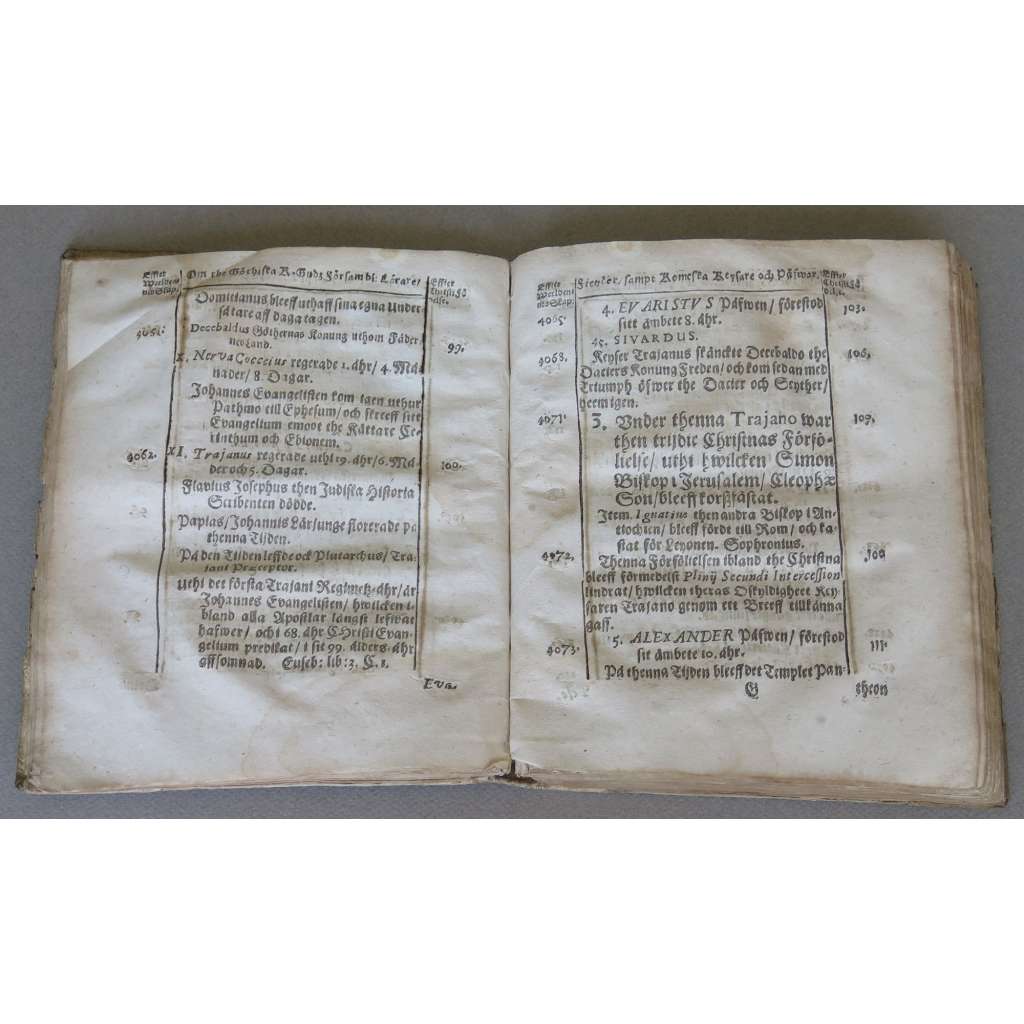 Effter
Werldenes
Skap.
Om the Göthiska K. Gudz Försambl: Lärare/
Effter
Christi Fö
delse.
Domitianus bleeff uthaff sina egna Under-
såtare aff daga tagen.
4061.
Decebaldus Göthernas Konung uthom Fäder-
nes Land.
99.
X. Nerva Cocceius regerade 1. åhr/ 4. Må-
nader/ 8. Dagar.
Johannes Evangelisten kom igen uthur
Pathmo till Ephesum/ och skreeff sitt
Evangelium emoot the Kättare Ce-
rinthum och Ebionem.
4062.
XI. Trajanus regerade uthi 19. åhr/ 6. Må-
der och 5. Dagar.
100.
Flavius Josephus then Judiska Historia
Scribenten dödde.
Papias/ Johannis Lärjunge florerade på
thenna Tijden.
På den Tijden leffde ock Plutarchus/ Tra-
jani Præceptor.
Uthi det första Trajani Regimetz-åhr/ är
Johannes Evangelisten/ hwilcken i-
bland alla Apostlar längst lefwat
hafwer/ och i 68. åhr CHristi Evan-
gelium predikat/ i sit 99. ålders-åhr
affsomnad. Euseb: lib: 3. C. 1.
Eva-
Effter
Werldenes
Skap.
Fiender, sampt Romeska Keysare och Påfwar.
Effter
Christi Fö
4065.
4. EVARISTVS Påfwen/ förestod
sitt ämbete 8. åhr.
103.
45. SIVARDUS.
4068.
Keyser Trajanus skänckte Decebaldo the
Daciers Konung Freden/ och kom sedan med
Triumph öfwer the Dacier och Scyther/
heem igen.
106.
4071.
3. Vnder thenna Trajano war
then trijdie Christnas Förfö-
lielse/ uthi hwilcken Simon
Biskop i Jerusalem/ Cleophæ
Son/ bleeff korßfästat.
109.
Item. Ignatius then andra Biskop i An-
tiochien/ bleeff förde till Rom/ och ka-
stat för Leyonen. Sophronius.
4072.
Thenna Förfölielsen ibland the Christna
bleeff förmedelst Plinij Secundi Intercession
lindrat/ hwilcken theras Oskyldigheet Key-
saren Trajano genom ett Breeff tillkänna
gaff.
4073.
5. ALEXANDER Påfwen/ förestod
sit ämbete 10. åhr.
111.
På thenna Tijden bleeff det Templet Pan-
G
theon